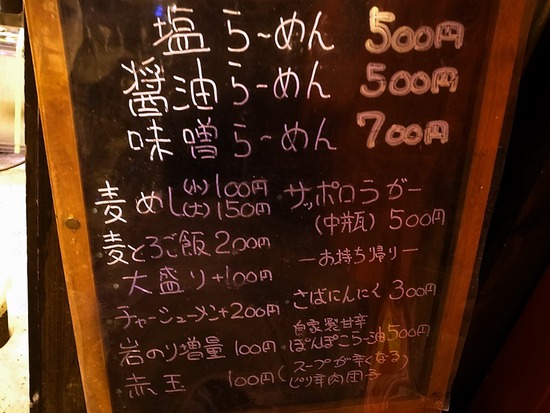 塩らーめん 500円
醤油らーめん 500円
味噌らーめん 700円
麦めし(小)100円
(大)150円
麦とろご飯 200円
大盛り+100円
チャーシューメン+200円
岩のり増量 100円
赤玉 100円(スープが辛くなる
ピリ辛肉団子)
サッポロラガー
(中瓶) 500円
ーお持ち帰りー
さばにんにく 300円
自家製甘辛
ぽんぽこらー油500円